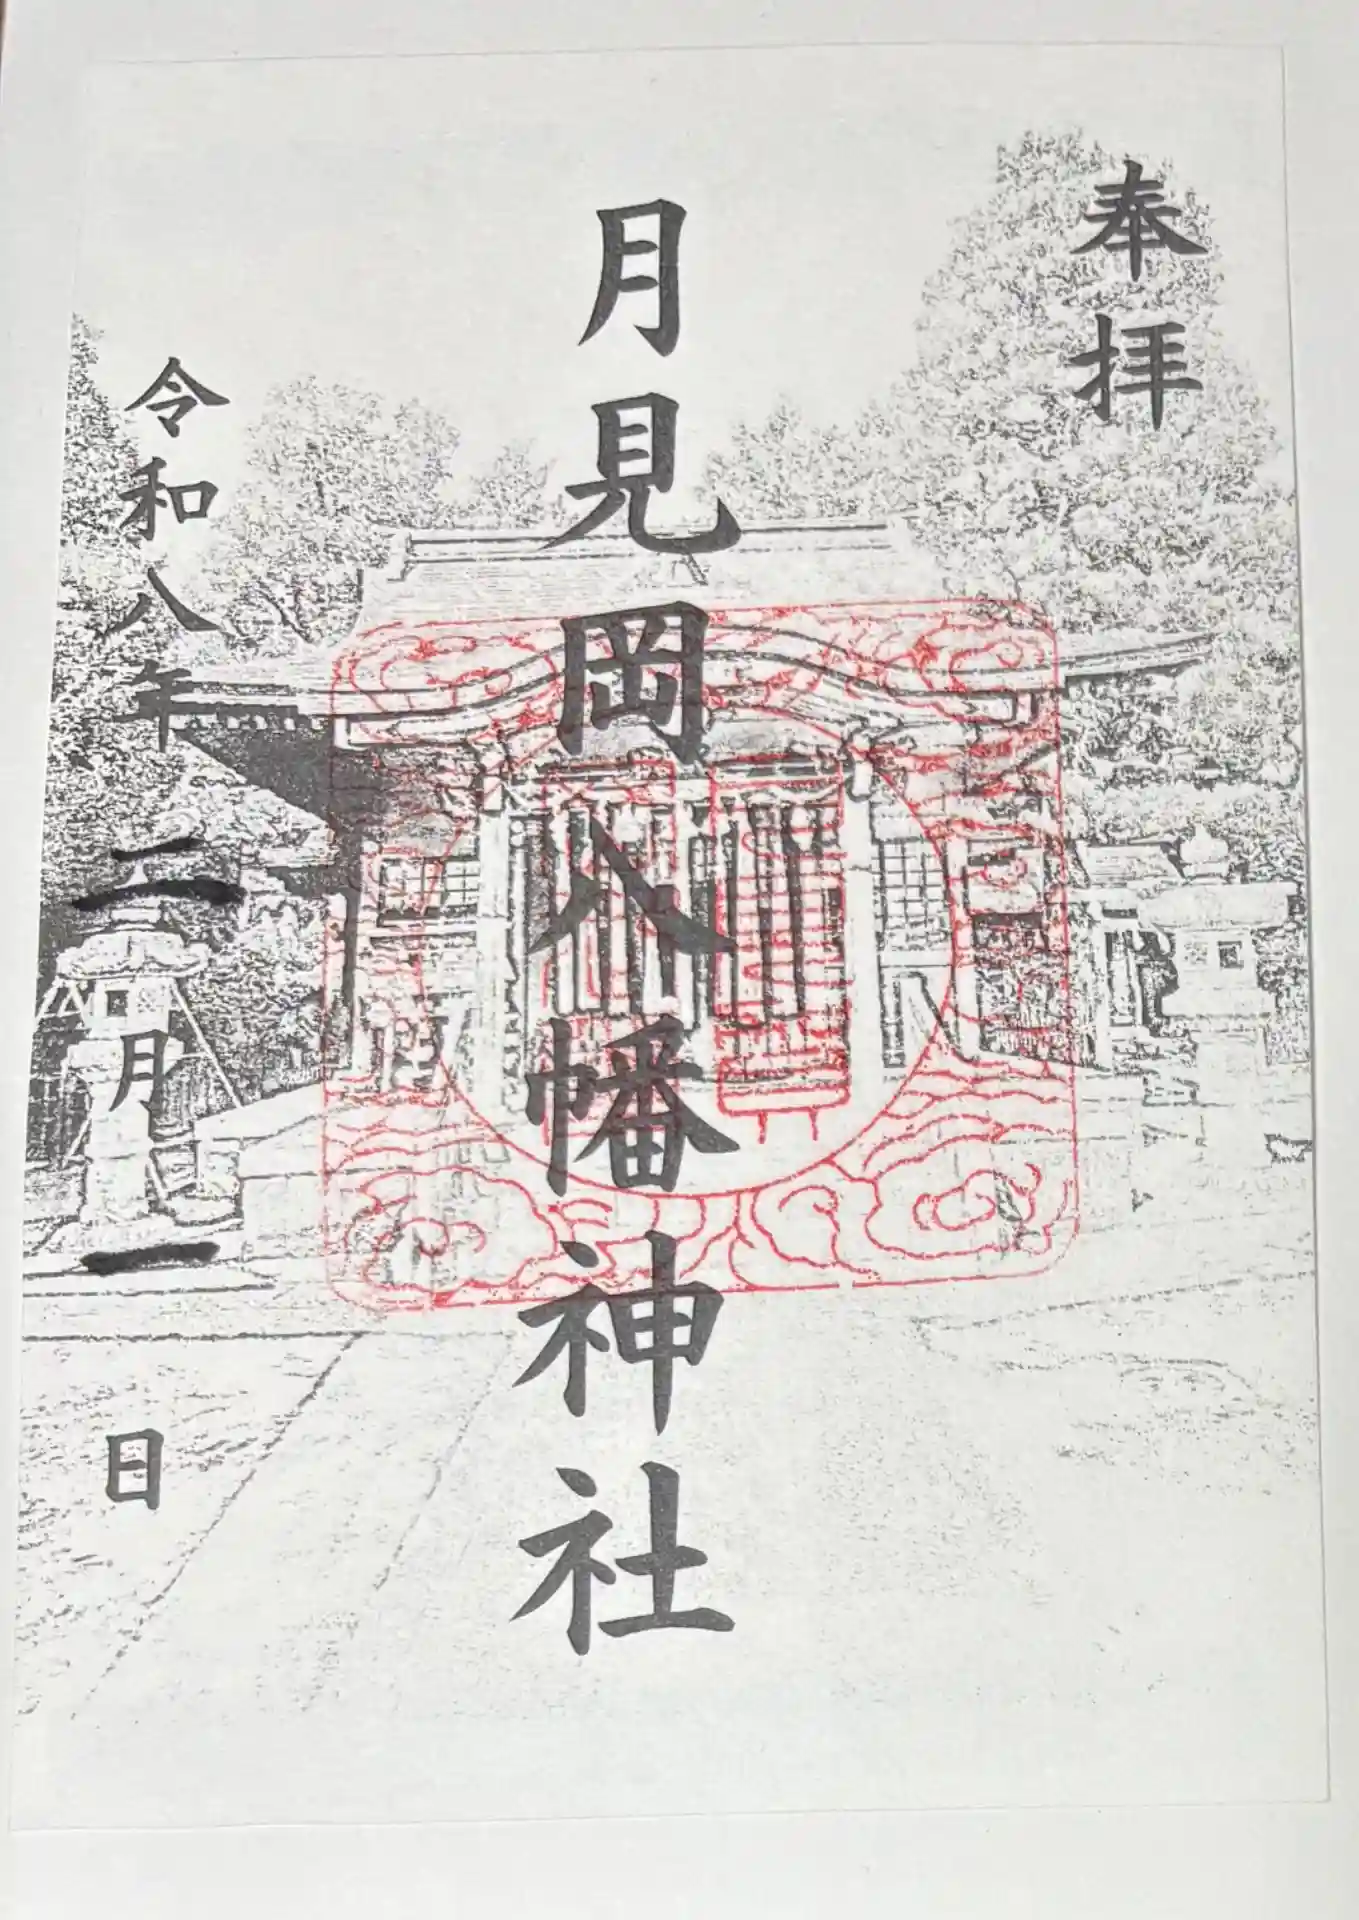 奉拝
月見岡八幡神社
令和八年二月一日